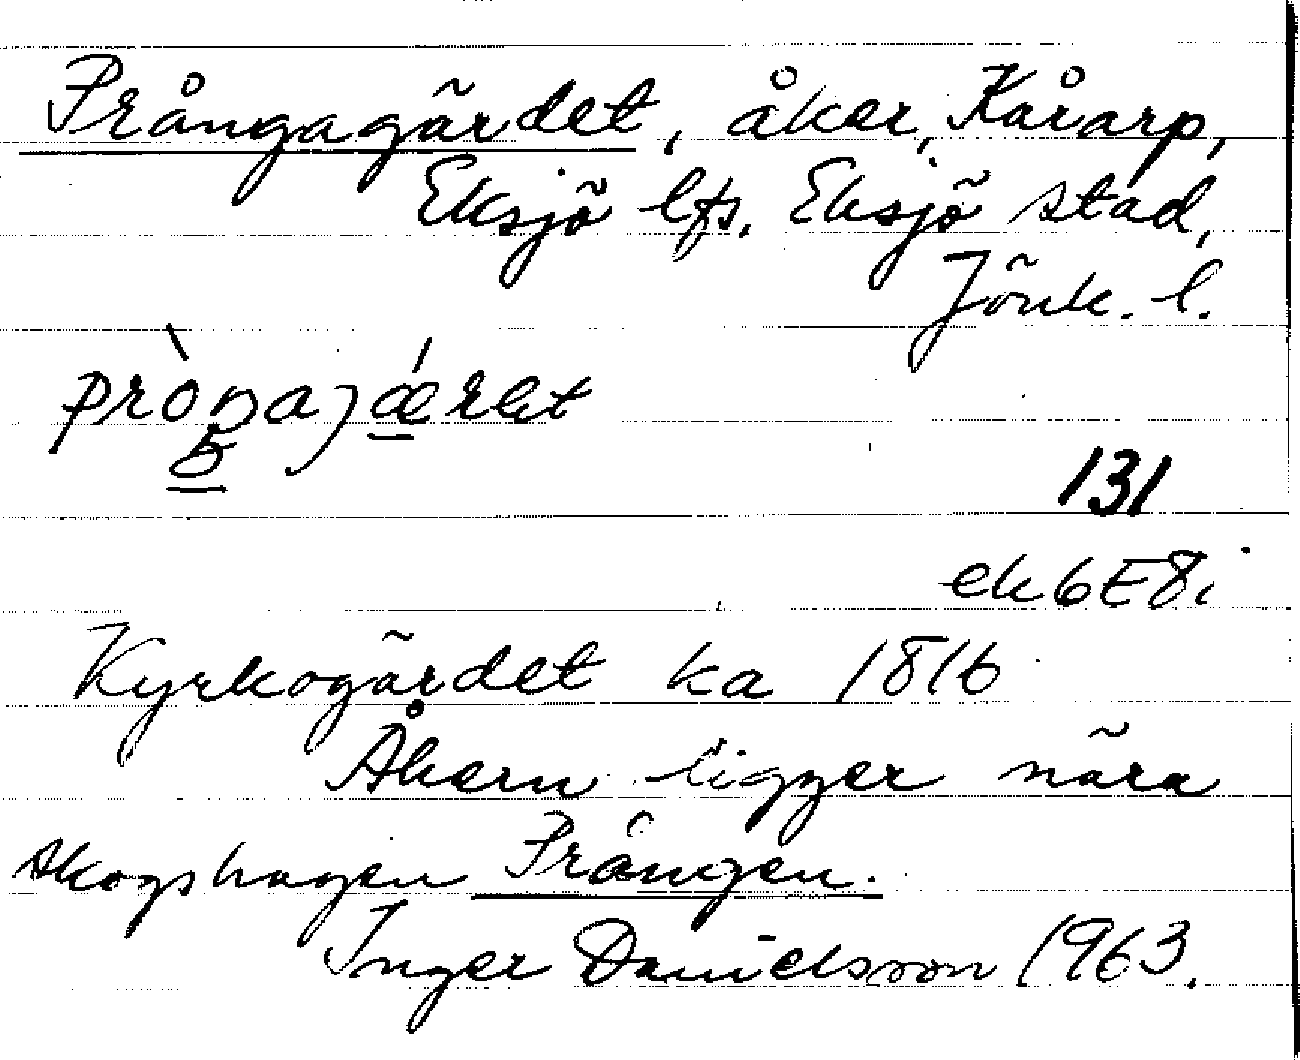 Prångagärdet, åker, Kårarp,
Eksjö lfs, Eksjö stad,
Jönk. l.
131
ek 6E8i
Kyrkogärdet ka 1816
Åkern ligger nära
skogshagen Prången.
Inger Danielsson 1963.